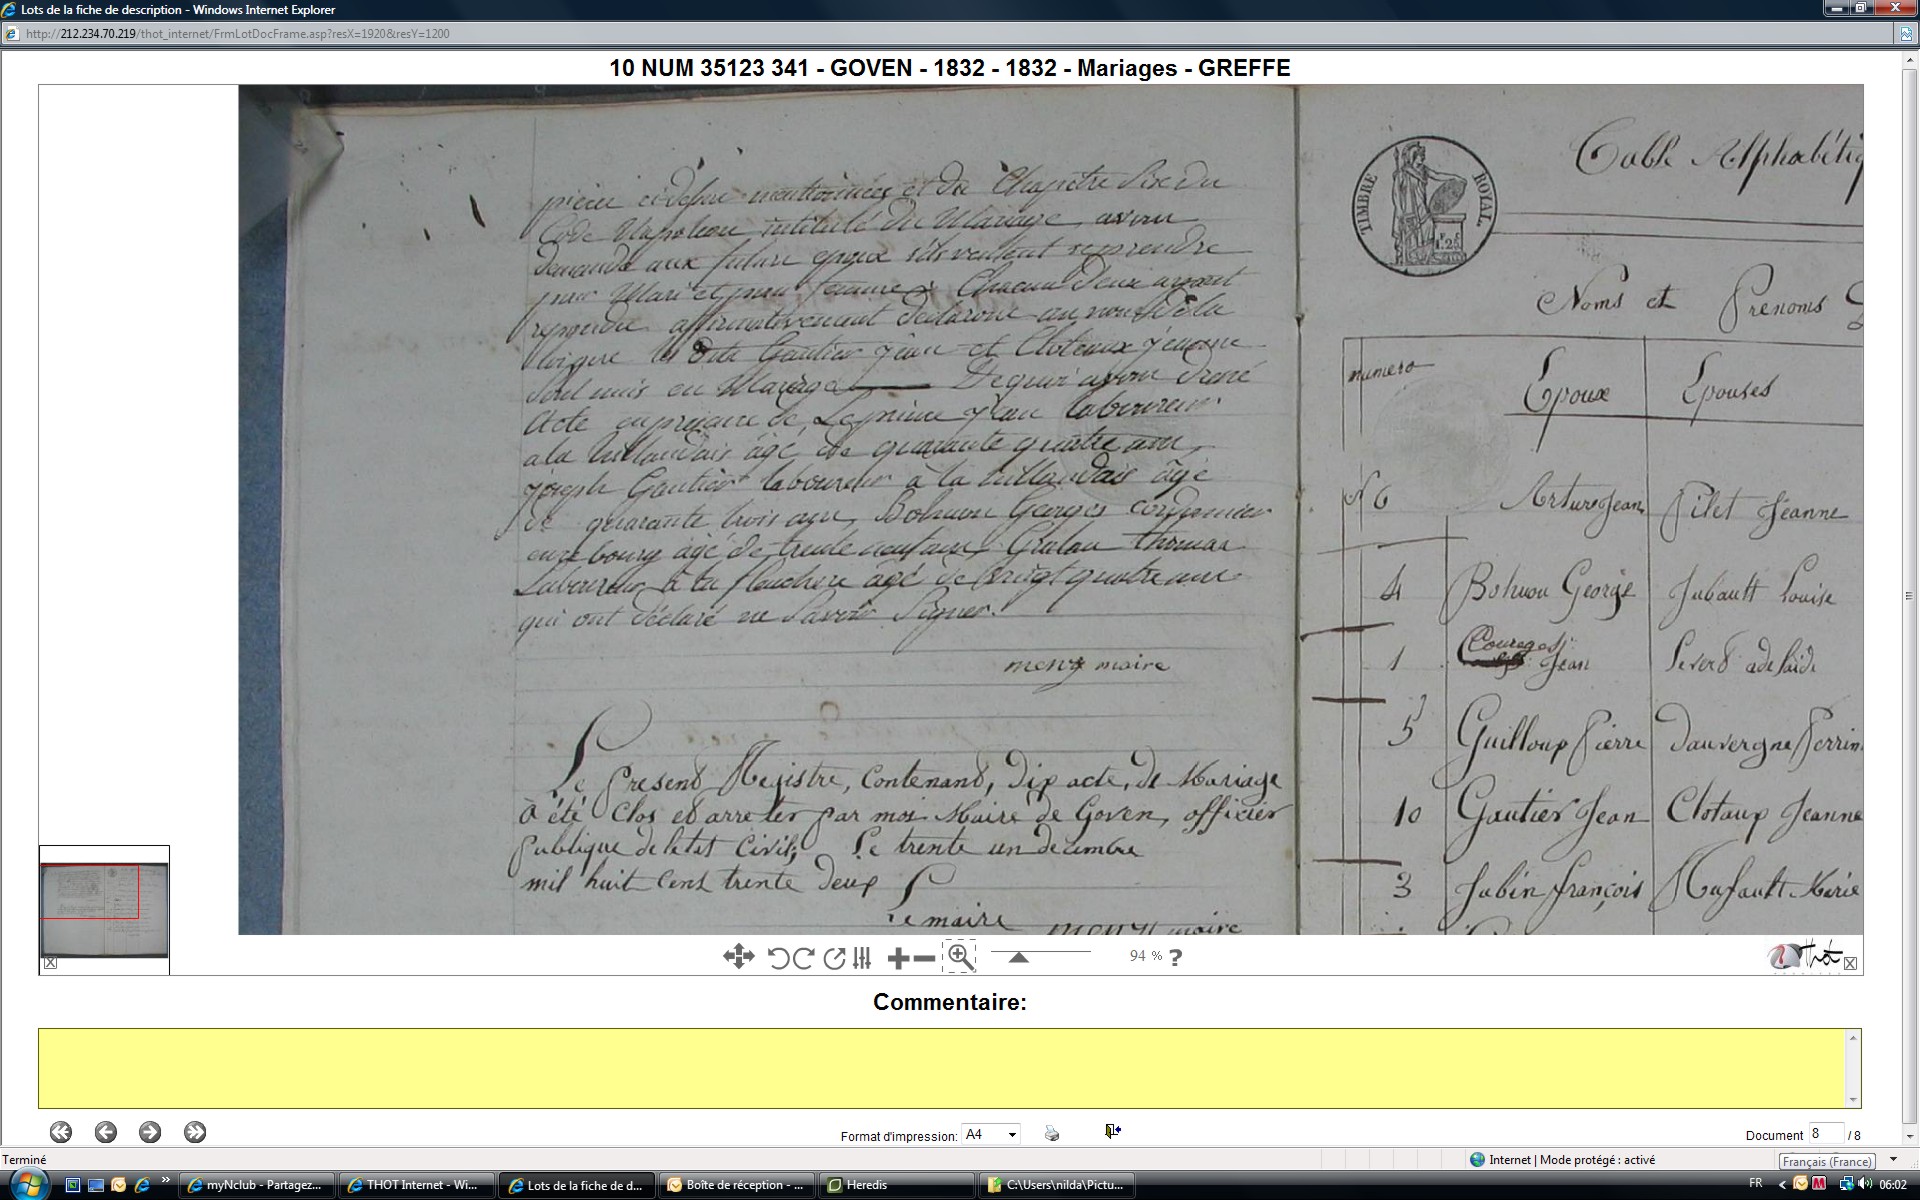 Lots de la fiche de description - Windows Internet Explorer
http://212.234.70.219/thot_internet/FrmLotDocFrame.asp?resX=1920&resY=1200
10 NUM 35123 341 - GOVEN - 1832 - 1832 - Mariages - GREFFE
mentionnées et du Chapitre Six du
Code Napoleon intitulé du Mariage, avons
demandé aux futurs epoux s'ils veulent se prendre
pour Mari et pour femme, Chacun deux ayant
repondu affirmativement declarons au nom de la
loi que les dits Gautier Jean et Clotaux Jeanne
sont unis en Mariage De qui avons dressé
Acte en présence de Jean laboureur
a la âgé de quarante quatre ans,
Joseph Gautier laboureur à la âgé
de quarante trois ans, Bohuon Georges cordonnier
au bourg âgé de trente neuf ans, Thomas
Laboureur à la âgé de vingt quatre ans
qui ont déclaré ne Savoir Signer.
meny maire
Le Present Registre, Contenant, dix acte, de Mariage
à été Clos et arreter par moi Maire de Goven, officier
publique de letat Civil, Le trente un decembre
mil huit cent trente deux
Le maire meny maire
TIMBRE ROYAL
Table Alphabétiq
Noms et Prenoms
numero Epoux Epouses
N 6 Arture Jean Pilet Jeanne
4 Bohuon George Jubault Louise
1 Jean adelaide
5 Guilloux Pierre Dauvergne Perrin
10 Gautier Jean Clotaux Jeanne
3 Jubin françois Marie
94 % ?
Thot
Commentaire:
Format d'impression: A4
Document 8 / 8
Terminé
Internet | Mode protégé : activé
Français (France)
myNclub - Partagez...
THOT Internet - Wi...
Lots de la fiche de d...
Boîte de réception - ...
Heredis
C:\Users\nilda\Pictu...
FR
06:02